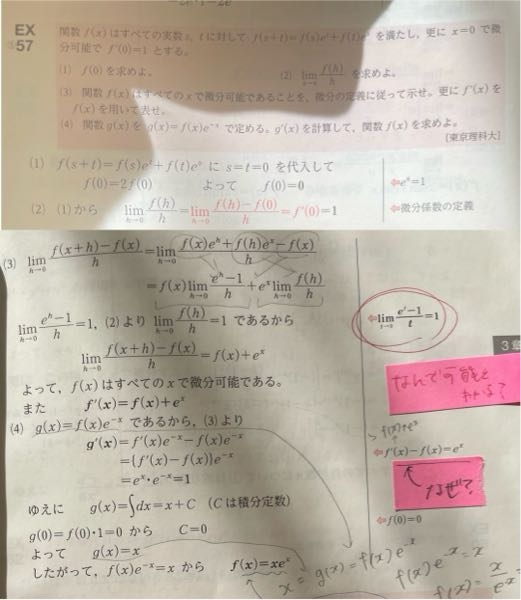 EX
57
関数 f(x) はすべての実数 s, t に対して f(s+t)=f(s)e^t+f(t)e^s を満たし，更に x=0 で微
分可能で f'(0)=1 とする。
(1) f(0) を求めよ。 (2) lim_{h→0} f(h)/h を求めよ。
(3) 関数 f(x) はすべての x で微分可能であることを，微分の定義に従って示せ。更に f'(x) を
f(x) を用いて表せ。
(4) 関数 g(x) を g(x)=f(x)e^{-x} で定める。g'(x) を計算して，関数 f(x) を求めよ。
[東京理科大]
(1) f(s+t)=f(s)e^t+f(t)e^s に s=t=0 を代入して
f(0)=2f(0) よって f(0)=0 ⇐e^0=1
(2) (1)から lim_{h→0} f(h)/h=lim_{h→0} (f(h)-f(0))/h=f'(0)=1 ⇐微分係数の定義
(3) lim_{h→0} (f(x+h)-f(x))/h=lim_{h→0} (f(x)e^h+f(h)e^x-f(x))/h
=f(x)lim_{h→0} (e^h-1)/h+e^x lim_{h→0} f(h)/h
lim_{h→0} (e^h-1)/h=1，(2)より lim_{h→0} f(h)/h=1 であるから ⇐lim_{t→0} (e^t-1)/t=1
lim_{h→0} (f(x+h)-f(x))/h=f(x)+e^x
3章
よって，f(x) はすべての x で微分可能である。
なんで可能と
わかる？
また f'(x)=f(x)+e^x
f(x)+e^x
(4) g(x)=f(x)e^{-x} であるから，(3)より
g'(x)=f'(x)e^{-x}-f(x)e^{-x} ⇐f'(x)-f(x)=e^x
={f'(x)-f(x)}e^{-x}
なぜ？
=e^x・e^{-x}=1
ゆえに g(x)=∫dx=x+C (C は積分定数)
g(0)=f(0)・1=0 から C=0 ⇐f(0)=0
よって g(x)=x
したがって，f(x)e^{-x}=x から f(x)=xe^x
x=g(x)=f(x)e^{-x}
f(x)e^{-x}=x
f(x)=x/e^{-x}